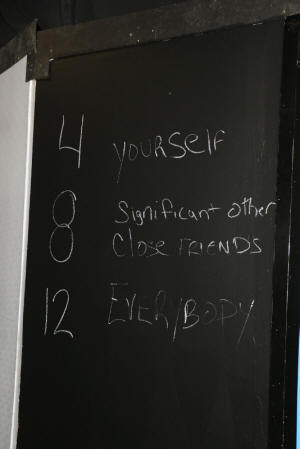 4 YOURSELF
8 Significant other
Close FRIENDS
12 EVERYBODY